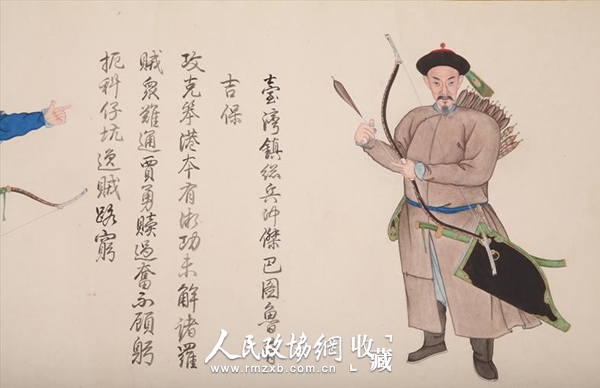 臺灣鎮總兵沖傑巴圖魯普
吉保
攻克笨港本有微功未解諸羅
賊眾難通賈勇贖過奮不顧躬
扼科仔坑邀賊路窮
人民政協網 收藏
www.rmzxb.com.cn